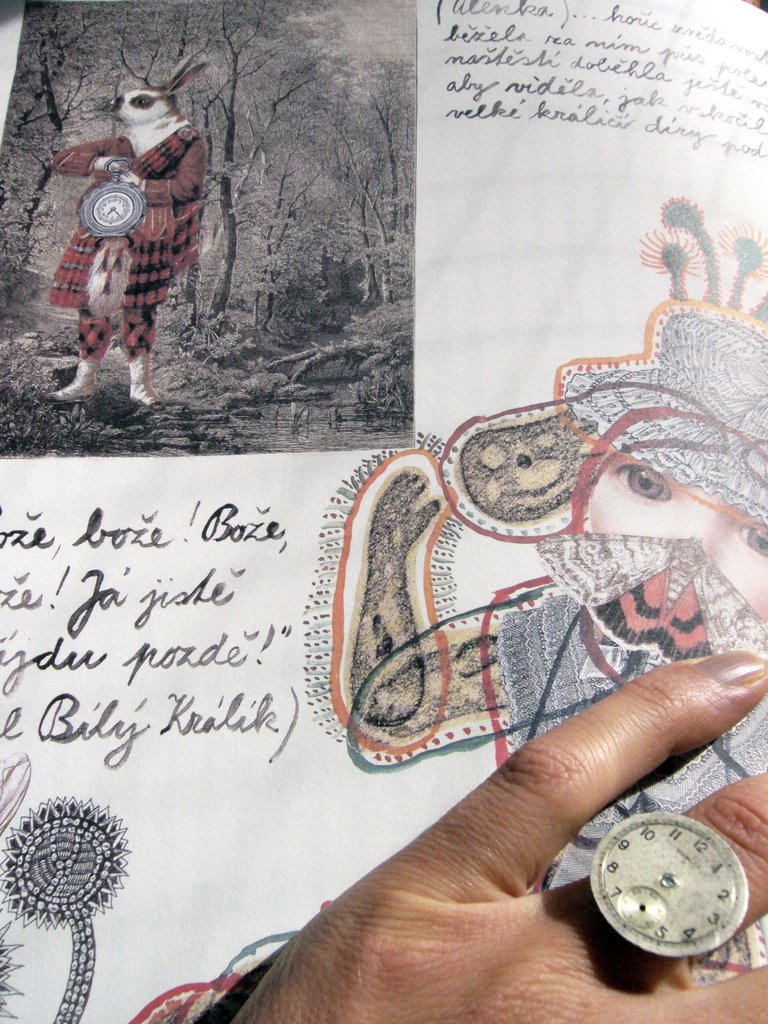 (Alenka)... hoříc
běžela za ním přes
naštěstí doběhla ještě
aby viděla, jak vskočil
velké králičí díry pod
bože! Bože,
Já jistě
pozdě!"
Bílý Králík)
10 11 12
9 1
8 2
7 3
5 4